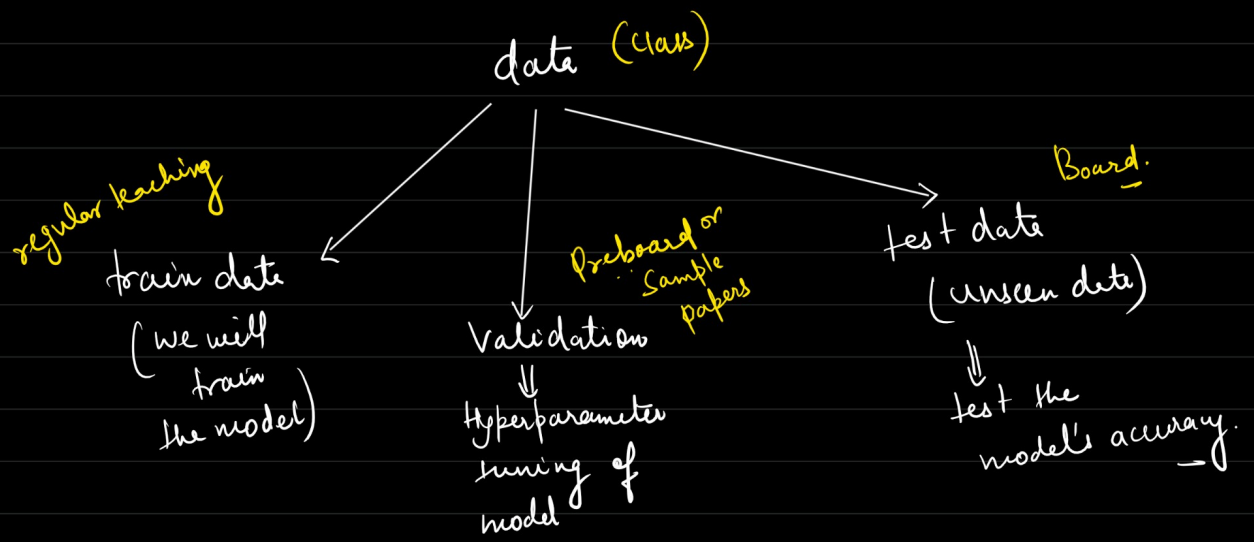 data (class)
regular teaching
train data
(we will
train
the model)
Preboard or
Sample
papers
Validation
⇓
Hyperparameter
tuning of
model
Board.
test data
(unseen data)
⇓
test the
model's accuracy.